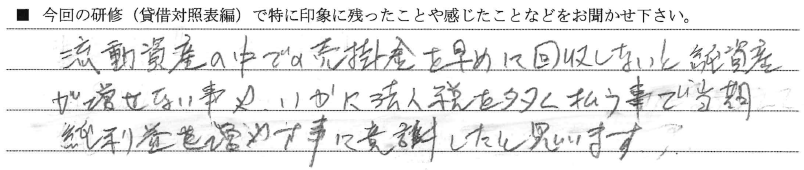 ■ 今回の研修（貸借対照表編）で特に印象に残ったことや感じたことなどをお聞かせ下さい。
流動資産の中での売掛金を早めに回収しないと純資産
が増せない事や、いかに法人税を多く払う事で当期
純利益を増やす事に意識したいと思います